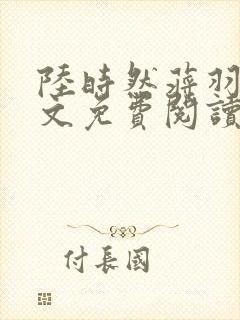 陸時然蔣羽
文免費閱讀
付長國